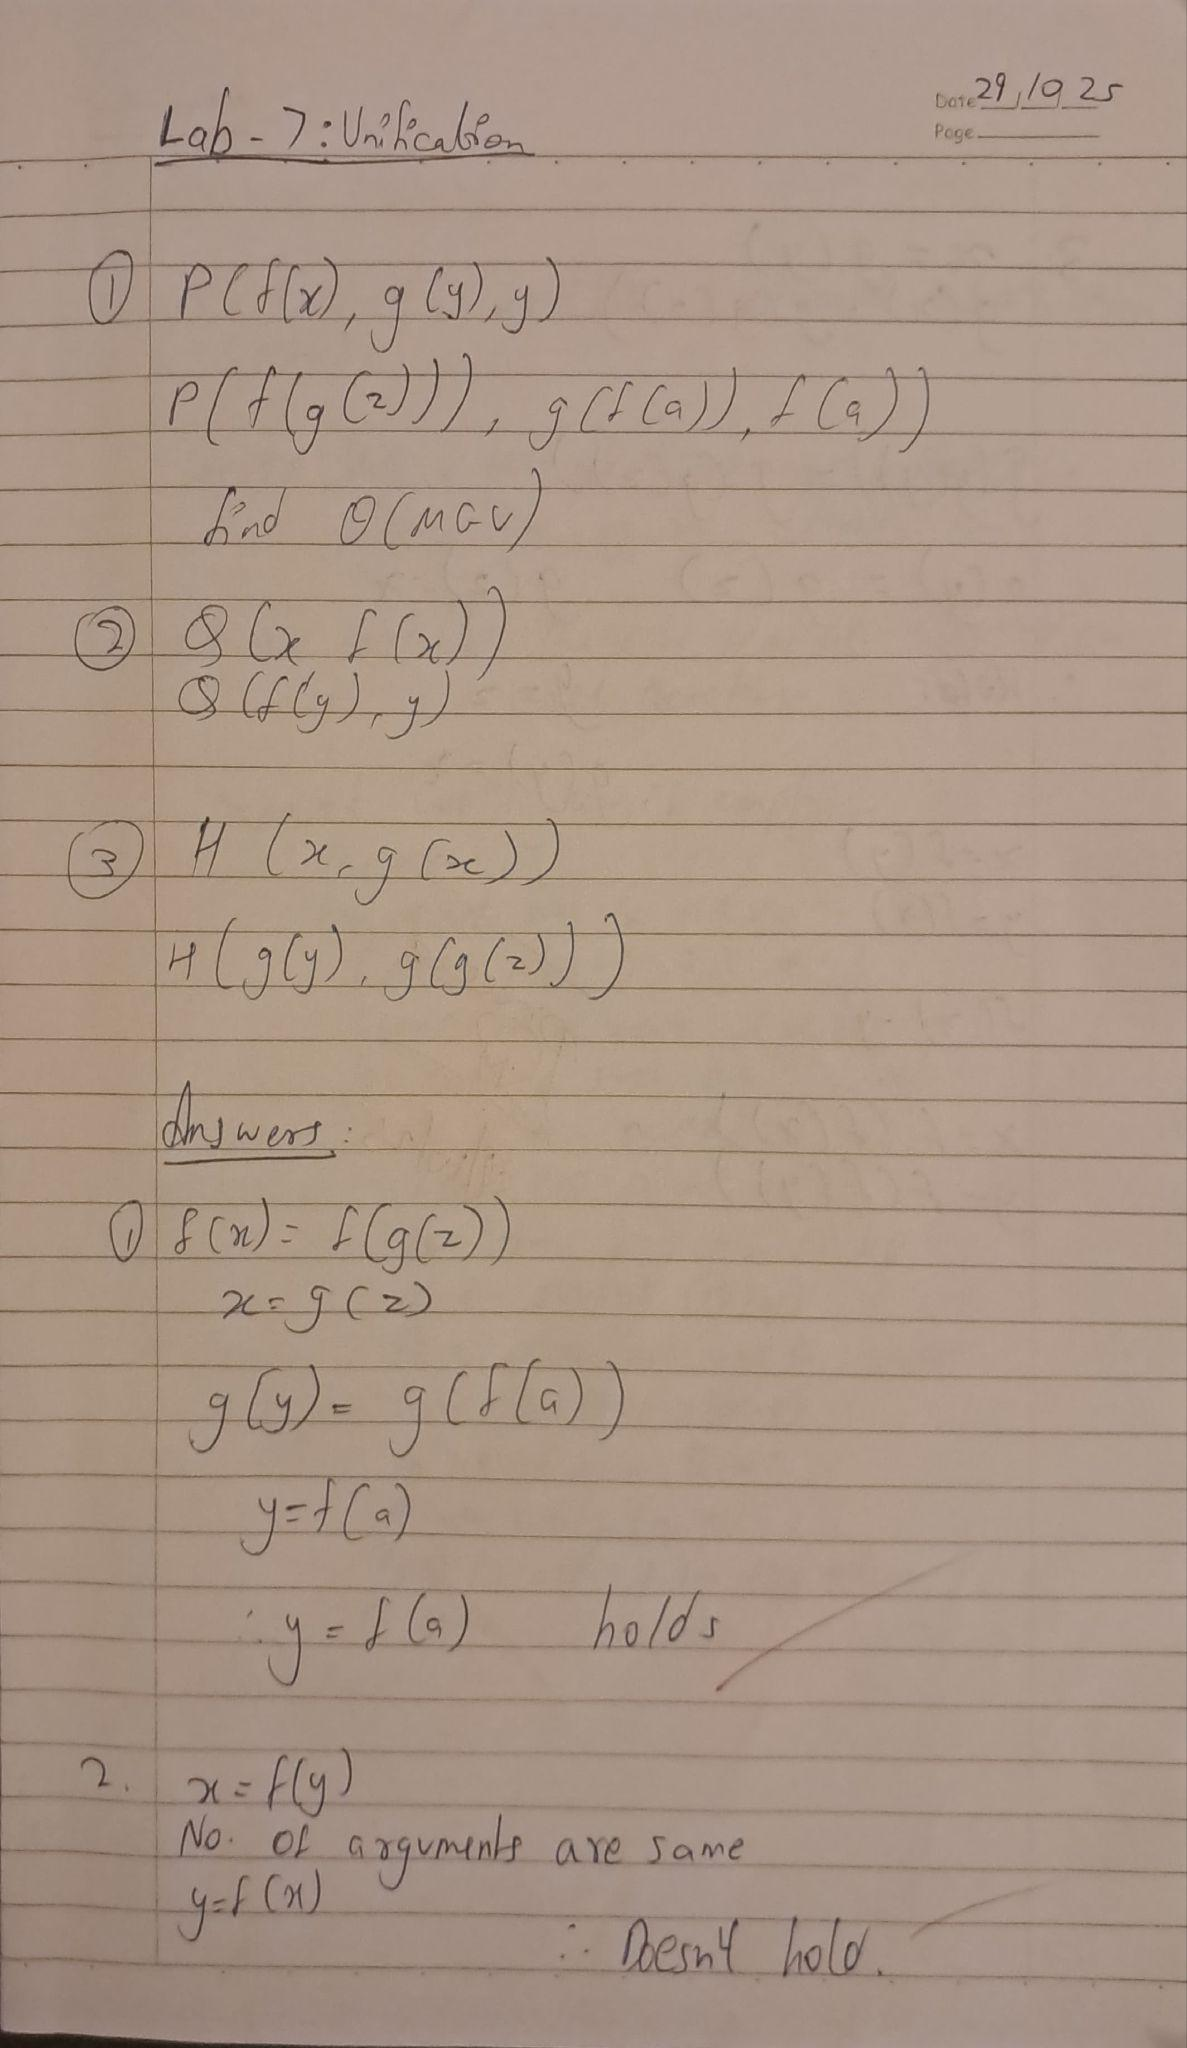 Date 29/10 25
Page
Lab - 7: Unification
① P(f(x), g(y), y)
P(f(g(z))), g(f(a)), f(a))
find θ(MGU)
② Q(x, f(x))
Q(f(y), y)
③ H (x, g(x))
H(g(y), g(g(z)))
Answers:
① f(x) = f(g(z))
x = g(z)
g(y) = g(f(a))
y = f(a)
∴ y = f(a) holds
2. x = f(y)
No. of arguments are same
y = f(x)
∴ Doesn't hold.